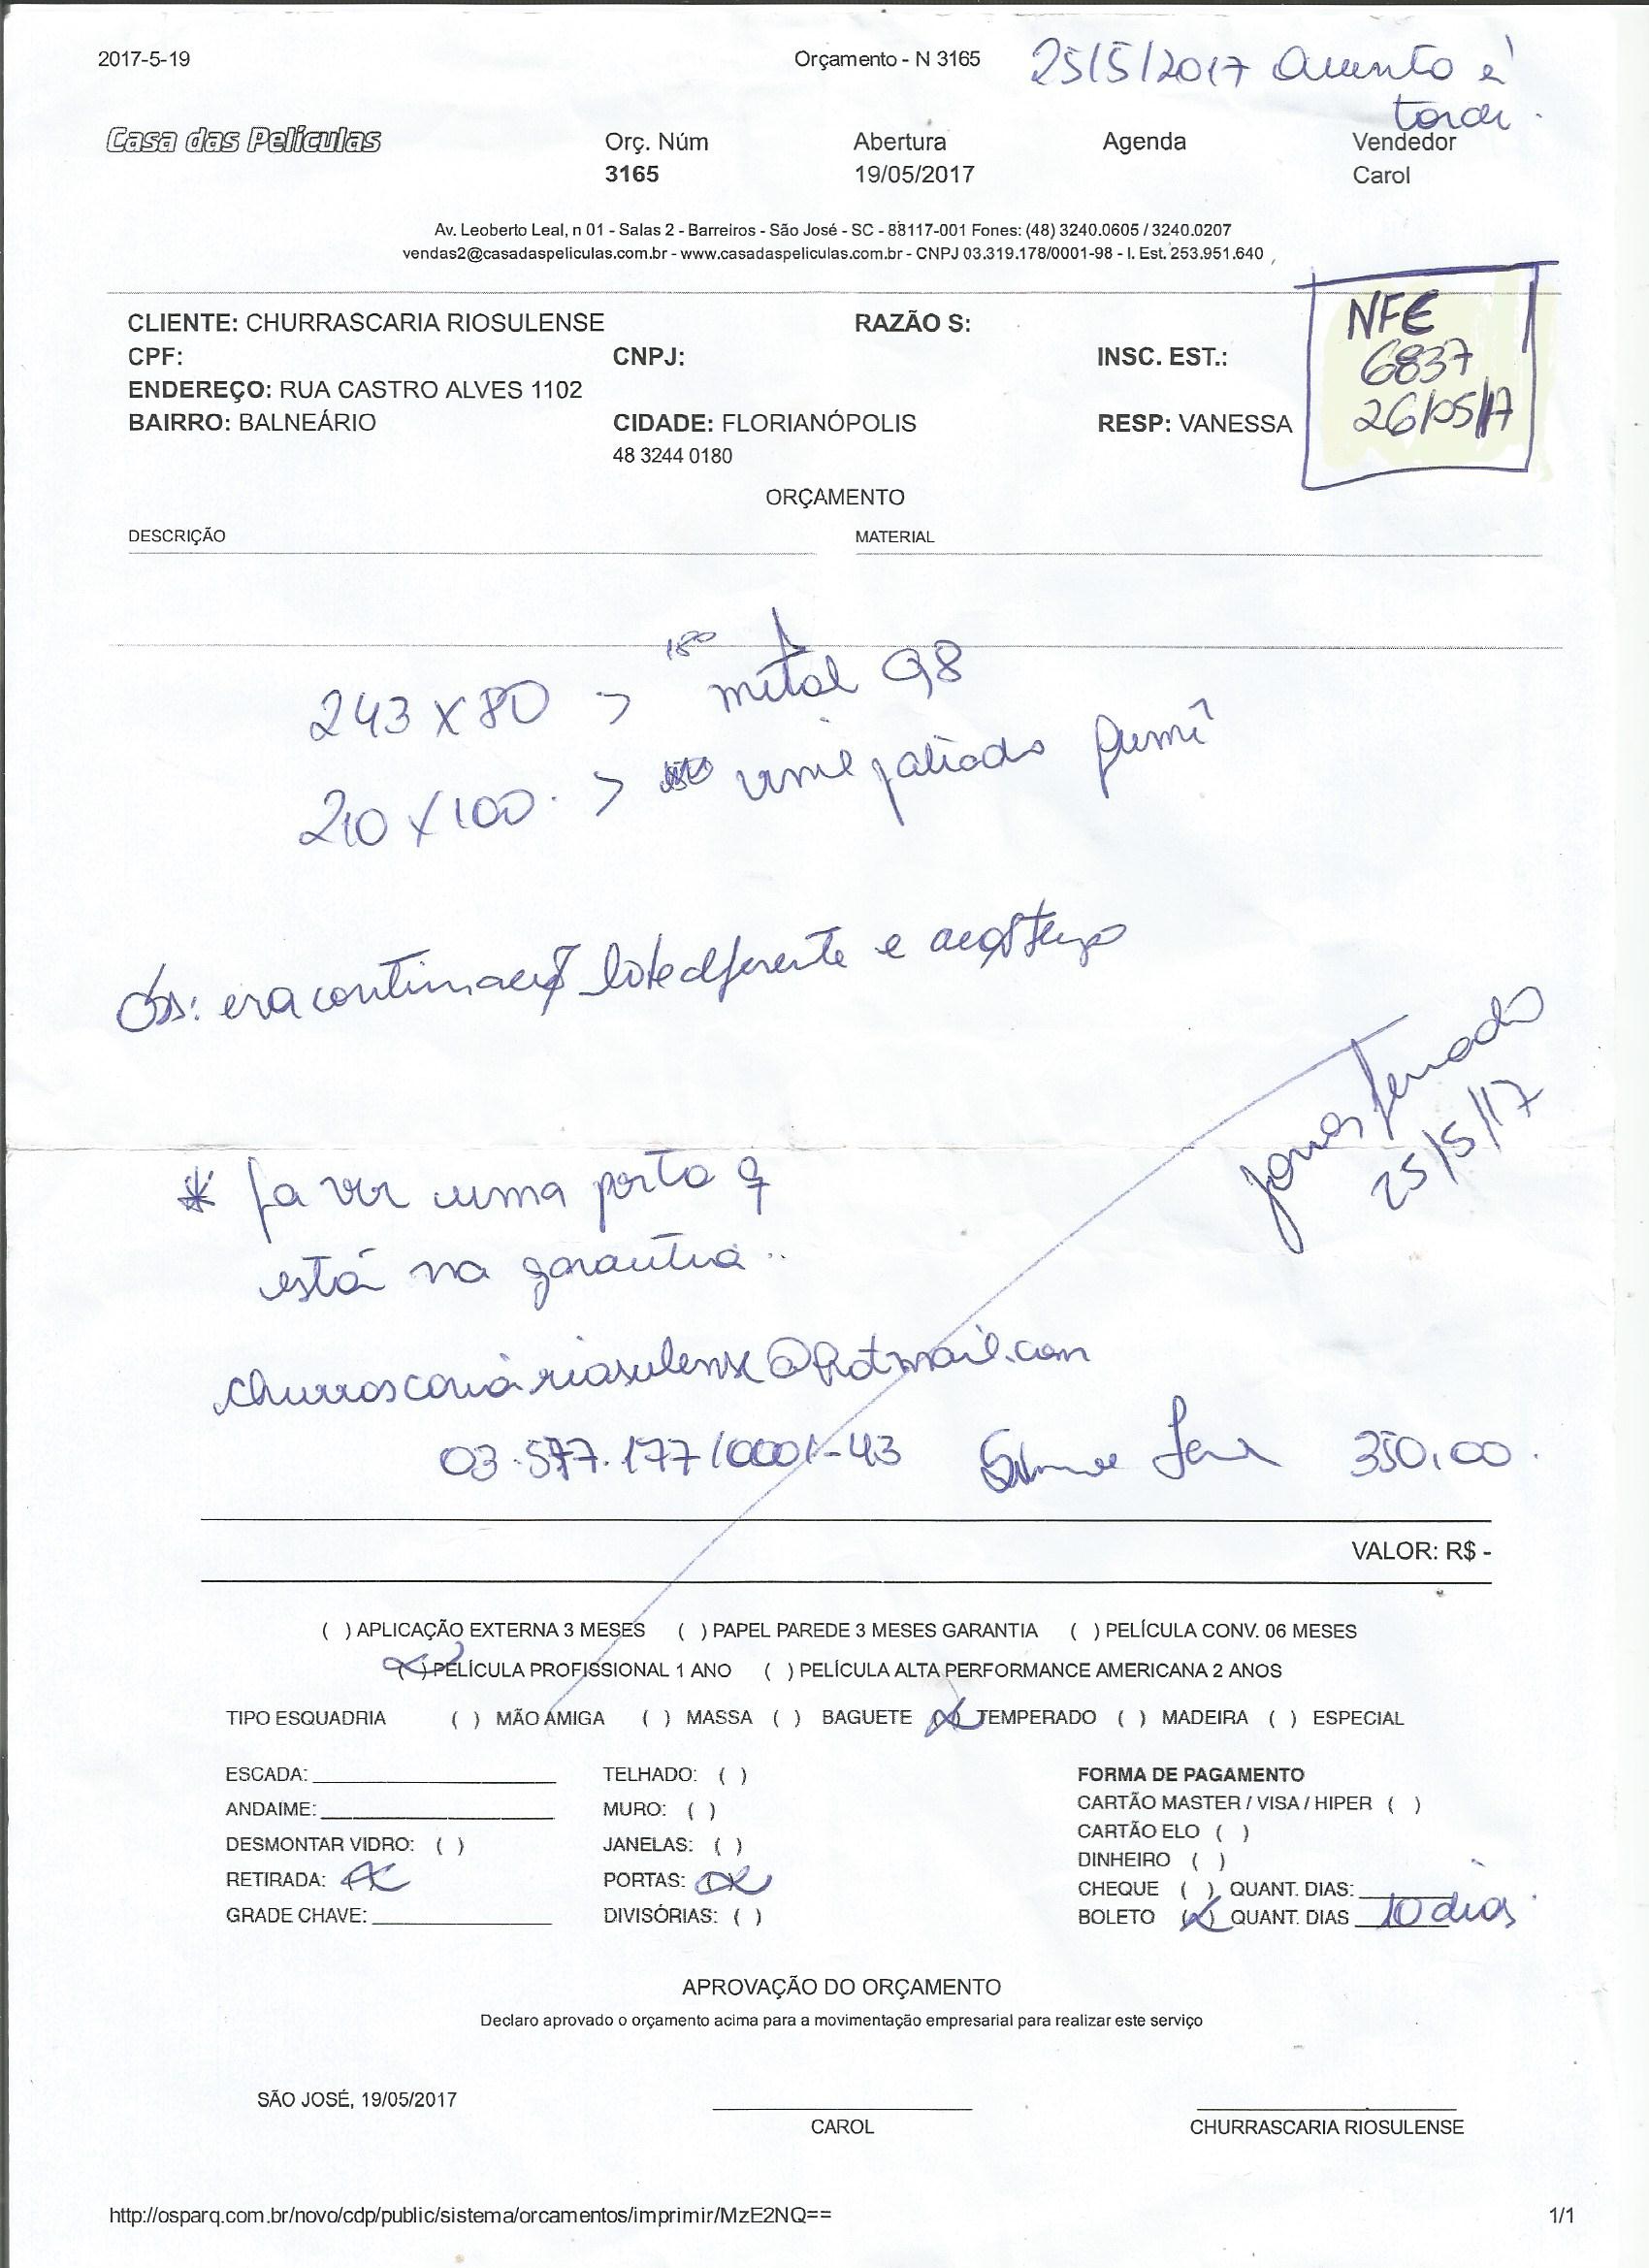 2017-5-19 Orçamento - N 3165 25/5/2017 a tarde.
Casa das Películas Orç. Núm Abertura Agenda Vendedor
3165 19/05/2017 Carol
Av. Leoberto Leal, n 01 - Salas 2 - Barreiros - São José - SC - 88117-001 Fones: (48) 3240.0605 / 3240.0207
vendas2@casadaspeliculas.com.br - www.casadaspeliculas.com.br - CNPJ 03.319.178/0001-98 - I. Est. 253.951.640
NFE
6837
26/05/17
CLIENTE: CHURRASCARIA RIOSULENSE RAZÃO S:
CPF: CNPJ: INSC. EST.:
ENDEREÇO: RUA CASTRO ALVES 1102
BAIRRO: BALNEÁRIO CIDADE: FLORIANÓPOLIS RESP: VANESSA
48 3244 0180
ORÇAMENTO
DESCRIÇÃO MATERIAL
243 x 80 > metal
210 x 100. > fumê
Obs: era lote diferente e
25/5/17
* ver uma porta q
está na garantia..
churrascariariosulense@hotmail.com
03.577.177/0001-43 350,00.
VALOR: R$ -
( ) APLICAÇÃO EXTERNA 3 MESES ( ) PAPEL PAREDE 3 MESES GARANTIA ( ) PELÍCULA CONV. 06 MESES
(x) PELÍCULA PROFISSIONAL 1 ANO ( ) PELÍCULA ALTA PERFORMANCE AMERICANA 2 ANOS
TIPO ESQUADRIA ( ) MÃO AMIGA ( ) MASSA ( ) BAGUETE (x) TEMPERADO ( ) MADEIRA ( ) ESPECIAL
ESCADA: TELHADO: ( ) FORMA DE PAGAMENTO
ANDAIME: MURO: ( ) CARTÃO MASTER / VISA / HIPER ( )
DESMONTAR VIDRO: ( ) JANELAS: ( ) CARTÃO ELO ( )
DINHEIRO ( )
RETIRADA: (x) PORTAS: (x) CHEQUE ( ) QUANT. DIAS:
GRADE CHAVE: DIVISÓRIAS: ( ) BOLETO (x) QUANT. DIAS 10 dias
APROVAÇÃO DO ORÇAMENTO
Declaro aprovado o orçamento acima para a movimentação empresarial para realizar este serviço
SÃO JOSÉ, 19/05/2017
CAROL CHURRASCARIA RIOSULENSE
http://osparq.com.br/novo/cdp/public/sistema/orcamentos/imprimir/MzE2NQ== 1/1